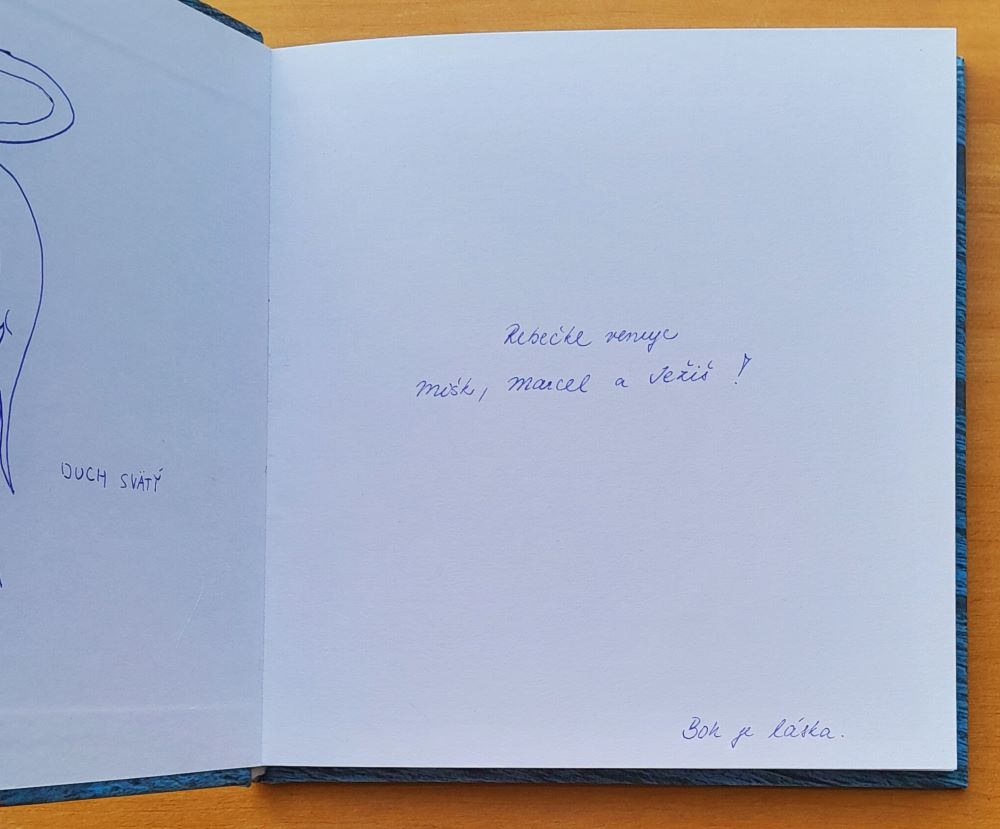 DUCH SVÄTÝ
Rebečke venuje
Mišk, Marcel a Ježiš!
Boh je láska.